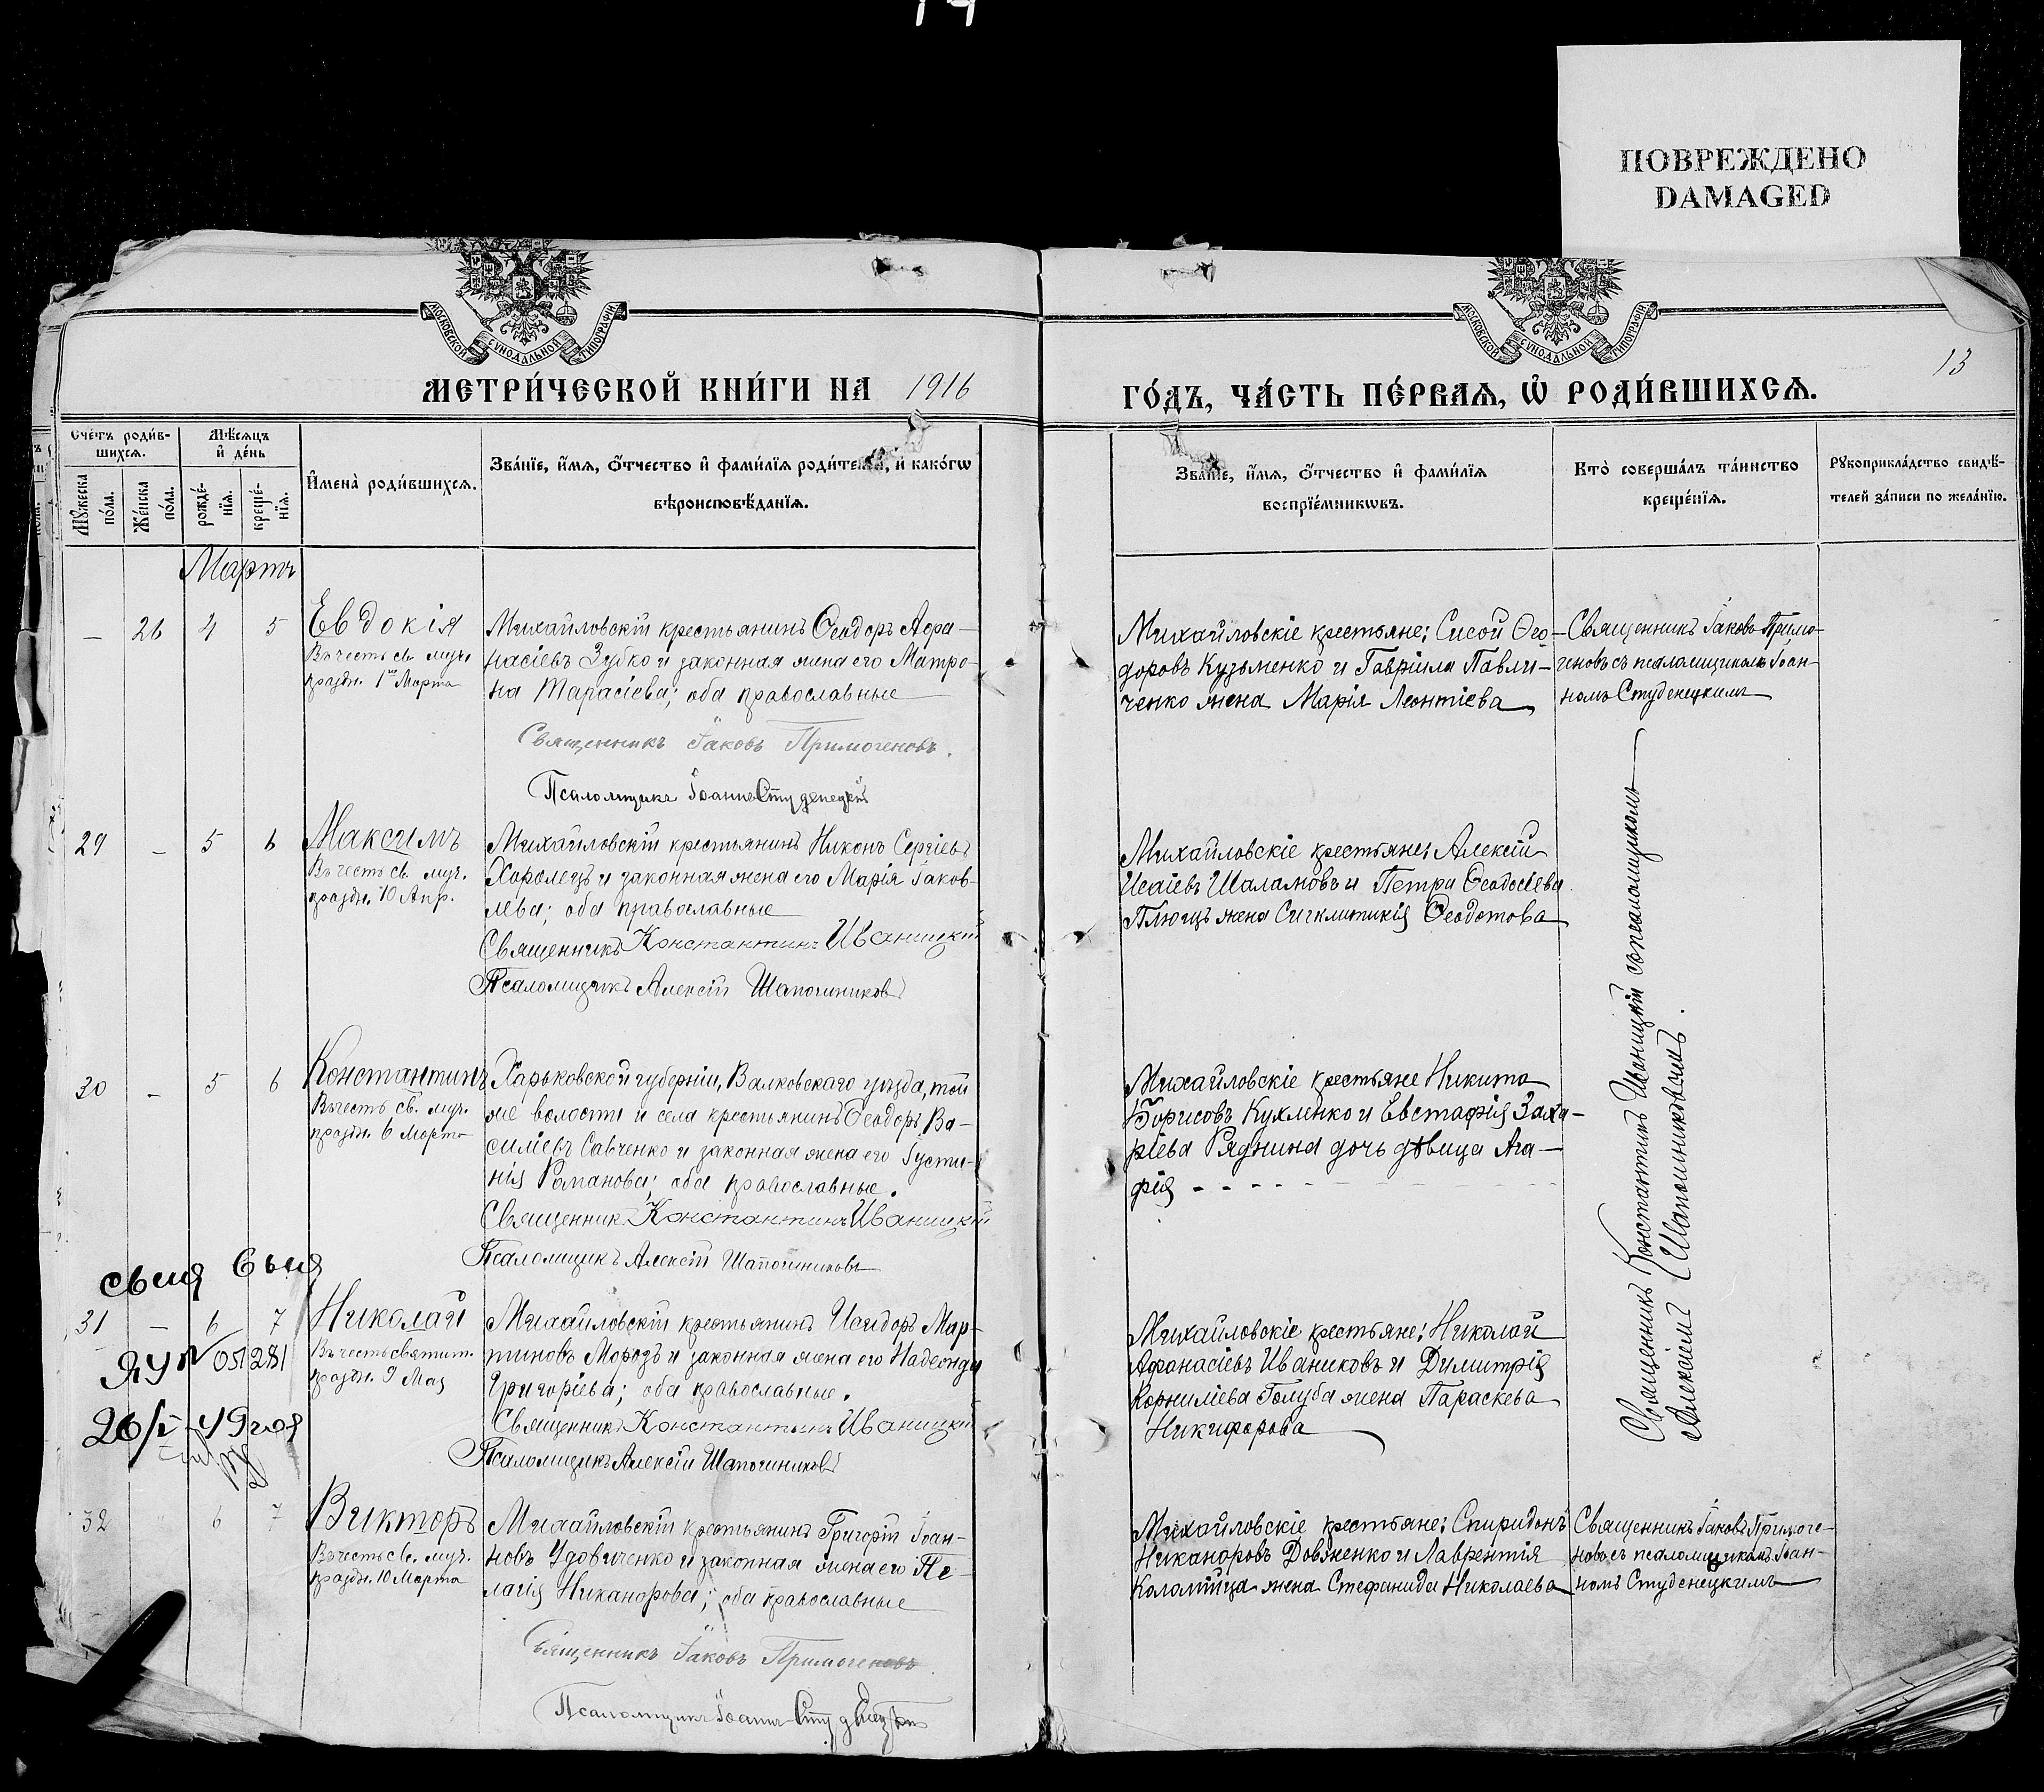 14
ПОВРЕЖДЕНО
DAMAGED
МОСКОВСКОЙ СѴНОДАЛЬНОЙ ТИПОГРАФІИ
МОСКОВСКОЙ СѴНОДАЛЬНОЙ ТИПОГРАФІИ
13
МЕТРИ́ЧЕСКОЙ КНИ́ГИ НА 1916
ГО́ДЪ, ЧА́СТЬ ПЕ́РВАѦ, Ѽ РОДИ́ВШИХСѦ.
Сче́тъ роди́в-
шихсѧ.
Мѣ́сѧцъ
и҆ де́нь
Мꙋ́жеска
по́ла.
Же́нска
по́ла.
рожде́-
нїѧ.
креще́-
нїѧ.
И҆мена̀ роди́вшихсѧ.
Зва́нїе, и҆́мѧ, ѻ҆́тчество и҆ фами́лїѧ роди́телей, и҆ како́гѡ
вѣроисповѣ́данїѧ.
Зва́нїе, и҆́мѧ, ѻ҆́тчество и҆ фами́лїѧ
воспрїе́мникѡвъ.
Кто̀ соверша́лъ та́инство
креще́нїѧ.
Рꙋкоприкла́дство свидѣ́-
телей за́писи по жела́нїю.
Мартъ
— 26 4 5
Евдокія
Въ честь св. муч.
праздн. 1го Марта
Михайловскій крестьянинъ Ѳеодоръ Афа-
насіевъ Зубко и законная жена его Матро-
на Тарасіева; оба православные
Священникъ Іаковъ Примогеновъ.
Псаломщикъ Іоаннъ Студенецкій
Михайловскіе крестьяне: Сисой Ѳео-
доровъ Кузьменко и Гавріила Павли-
ченко жена Марія Леонтіева
Священникъ Іаковъ Примо-
геновъ съ псаломщикомъ Іоан-
номъ Студенецкимъ
29 — 5 6
Максимъ
Въ честь св. муч.
праздн. 10 Апр.
Михайловскій крестьянинъ Никонъ Сергіевъ
Хоролецъ и законная жена его Марія Іаков-
лева; оба православные
Священникъ Константинъ Иваницкій
Псаломщикъ Алексій Шапошниковъ
Михайловскіе крестьяне: Алексій
Исаіевъ Шаламовъ и Петра Ѳеодосіева
Плющъ жена Сигклитикія Ѳеодотова
30 — 5 6
Константинъ
Въ честь св. муч.
праздн. 6 Марта
Харьковской губерніи, Валковскаго уѣзда, той
же волости и села крестьянинъ Ѳеодоръ Ва-
силіевъ Савченко и законная жена его Іусти-
нія Романова; оба православные.
Священник Константинъ Иваницкій
Псаломщикъ Алексій Шапошниковъ
Михайловскіе крестьяне Никита
Борисовъ Кухленко и Евстафія Заха-
ріева Ряднина дочь дѣвица Ага-
фія
Священникъ Константинъ Иваницкій съ псаломщикомъ
Алексіемъ Шапошниковымъ.
31 — 6 7
Николай
Въ честь святит.
праздн. 9 Мая
051281
Михайловскій крестьянинъ Исидоръ Мар-
тиновъ Морозъ и законная жена его Надежда
Григоріева; оба православные.
Священникъ Константинъ Иваницкій
Псаломщикъ Алексій Шапошниковъ
Михайловскіе крестьяне: Николай
Афанасіевъ Иваниковъ и Димитрія
Корниліева Голуба жена Параскева
Никифорова
32 " 6 7
Викторъ
Въ честь св. муч.
праздн. 10 Марта
Михайловскій крестьянинъ Григорій Іоан-
новъ Удовиченко и законная жена его Пе-
лагія Никанорова; оба православные
Священникъ Іаковъ Примогеновъ
Псаломщикъ Іоаннъ Студенецкій
Михайловскіе крестьяне: Спиридонъ
Никаноровъ Довженко и Лаврентія
Коломійца жена Стефанида Николаева
Священникъ Іаковъ Примоге-
новъ съ псаломщикомъ Іоан-
номъ Студенецкимъ